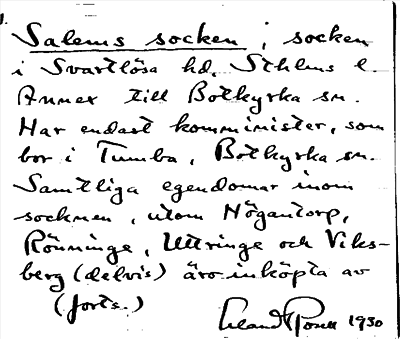 1.
Salems socken, socken
i Svartlösa hd, Sthlms l.
Annex till Botkyrka sn.
Har endast komminister, som
bor i Tumba, Botkyrka sn.
Samtliga egendomar inom
socknen, utom Högantorp,
Rönninge, Uttringe och Viks-
berg (delvis) äro inköpta av
(forts.)
Erland Rosell 1930